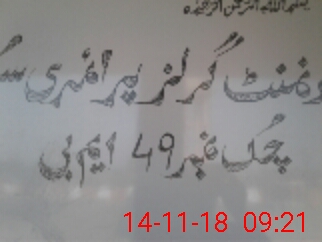 بسم اللہ الرحمن الرحیم
ورنمنٹ گرلز پرائمری سک
چک نمبر 49 ایم بی
14-11-18 09:21